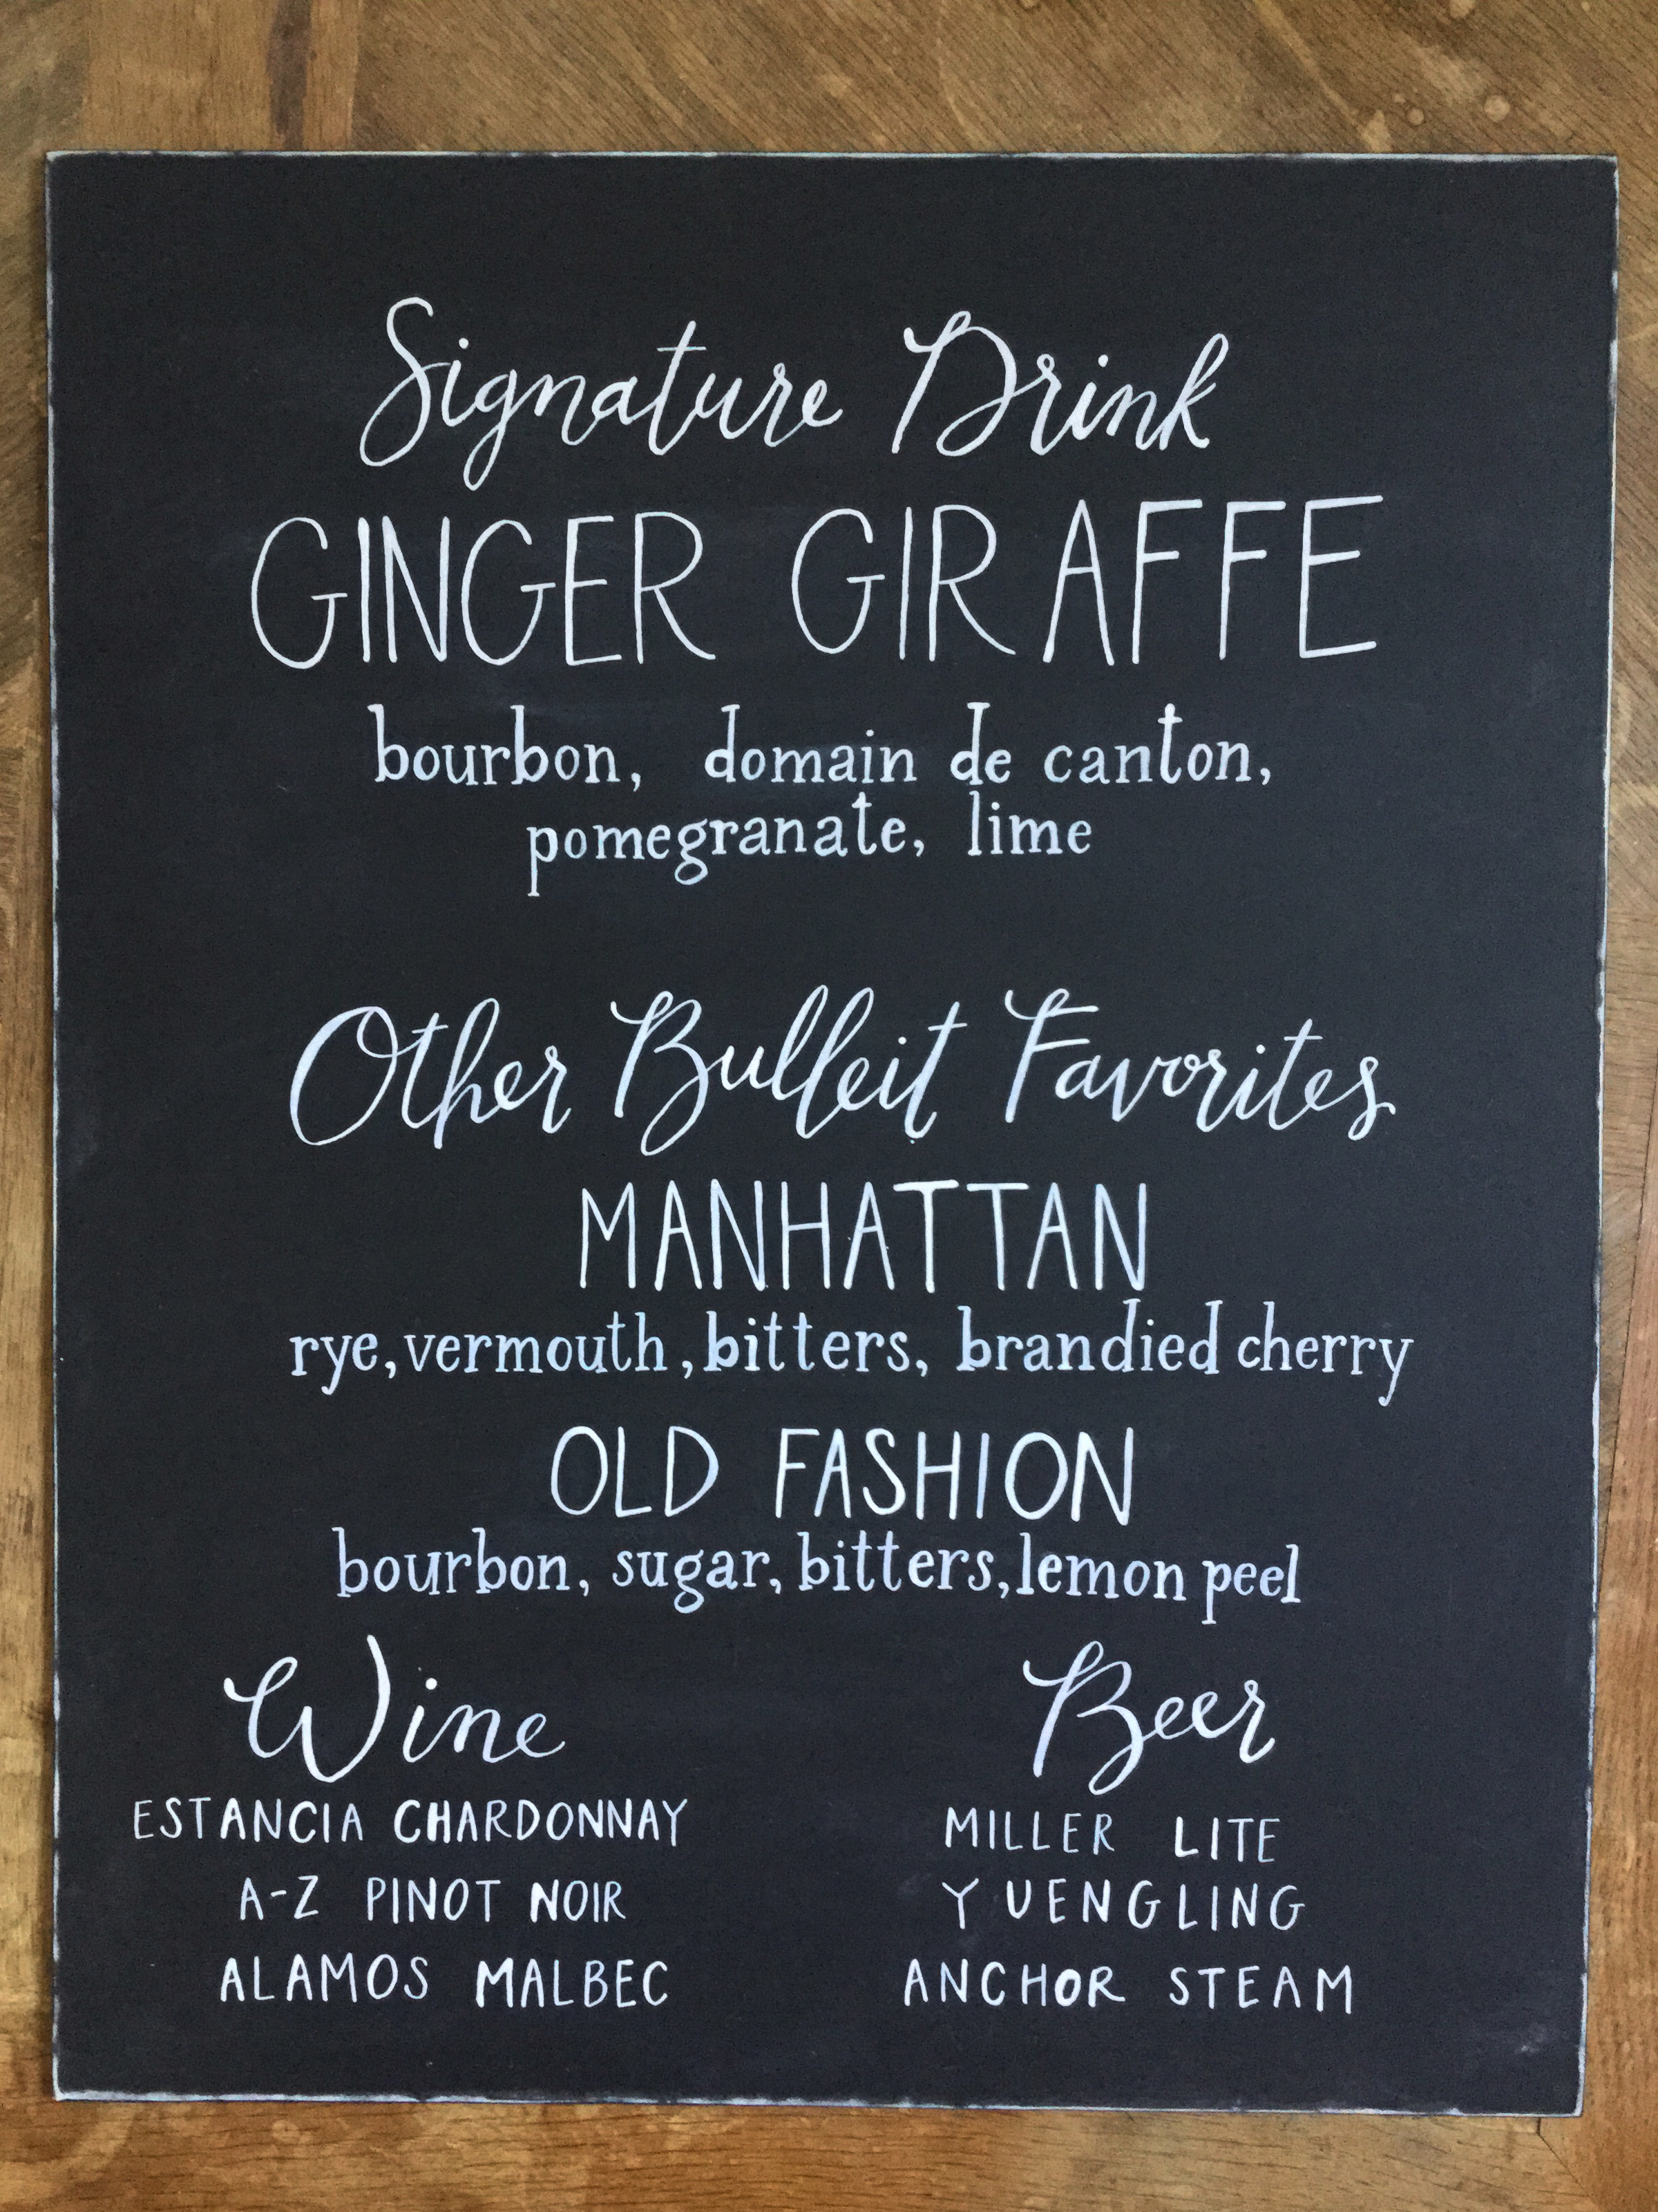 Signature Drink
GINGER GIRAFFE
bourbon, domain de canton,
pomegranate, lime
Other Bulleit Favorites
MANHATTAN
rye, vermouth, bitters, brandied cherry
OLD FASHION
bourbon, sugar, bitters, lemon peel
Wine
ESTANCIA CHARDONNAY
A-Z PINOT NOIR
ALAMOS MALBEC
Beer
MILLER LITE
YUENGLING
ANCHOR STEAM